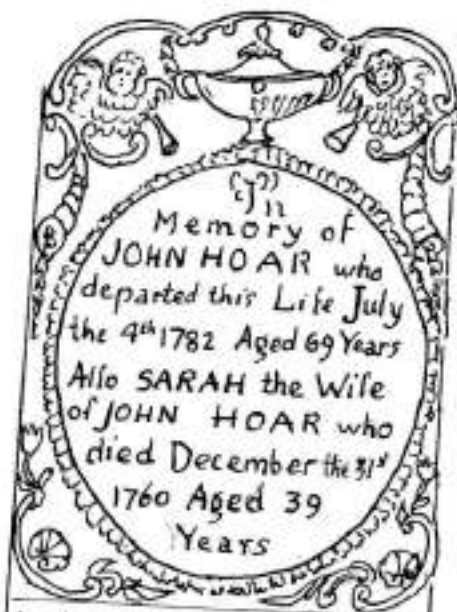 In
Memory of
JOHN HOAR who
departed this Life July
the 4th 1782 Aged 69 Years
Also SARAH the Wife
of JOHN HOAR who
died December the 31st
1760 Aged 39
Years